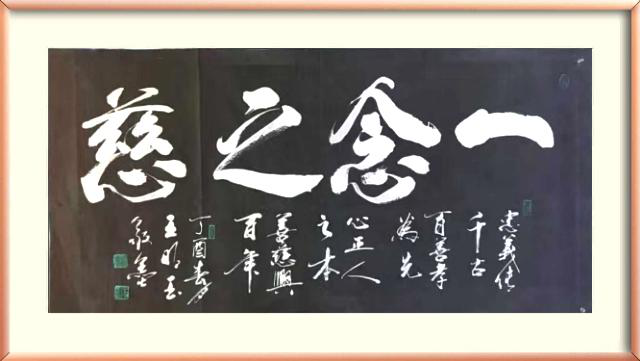 一念之慈
忠義傳
千古
百善孝
為先
心正人
之本
善慈興
百年
丁酉春月
王明玉
敬墨